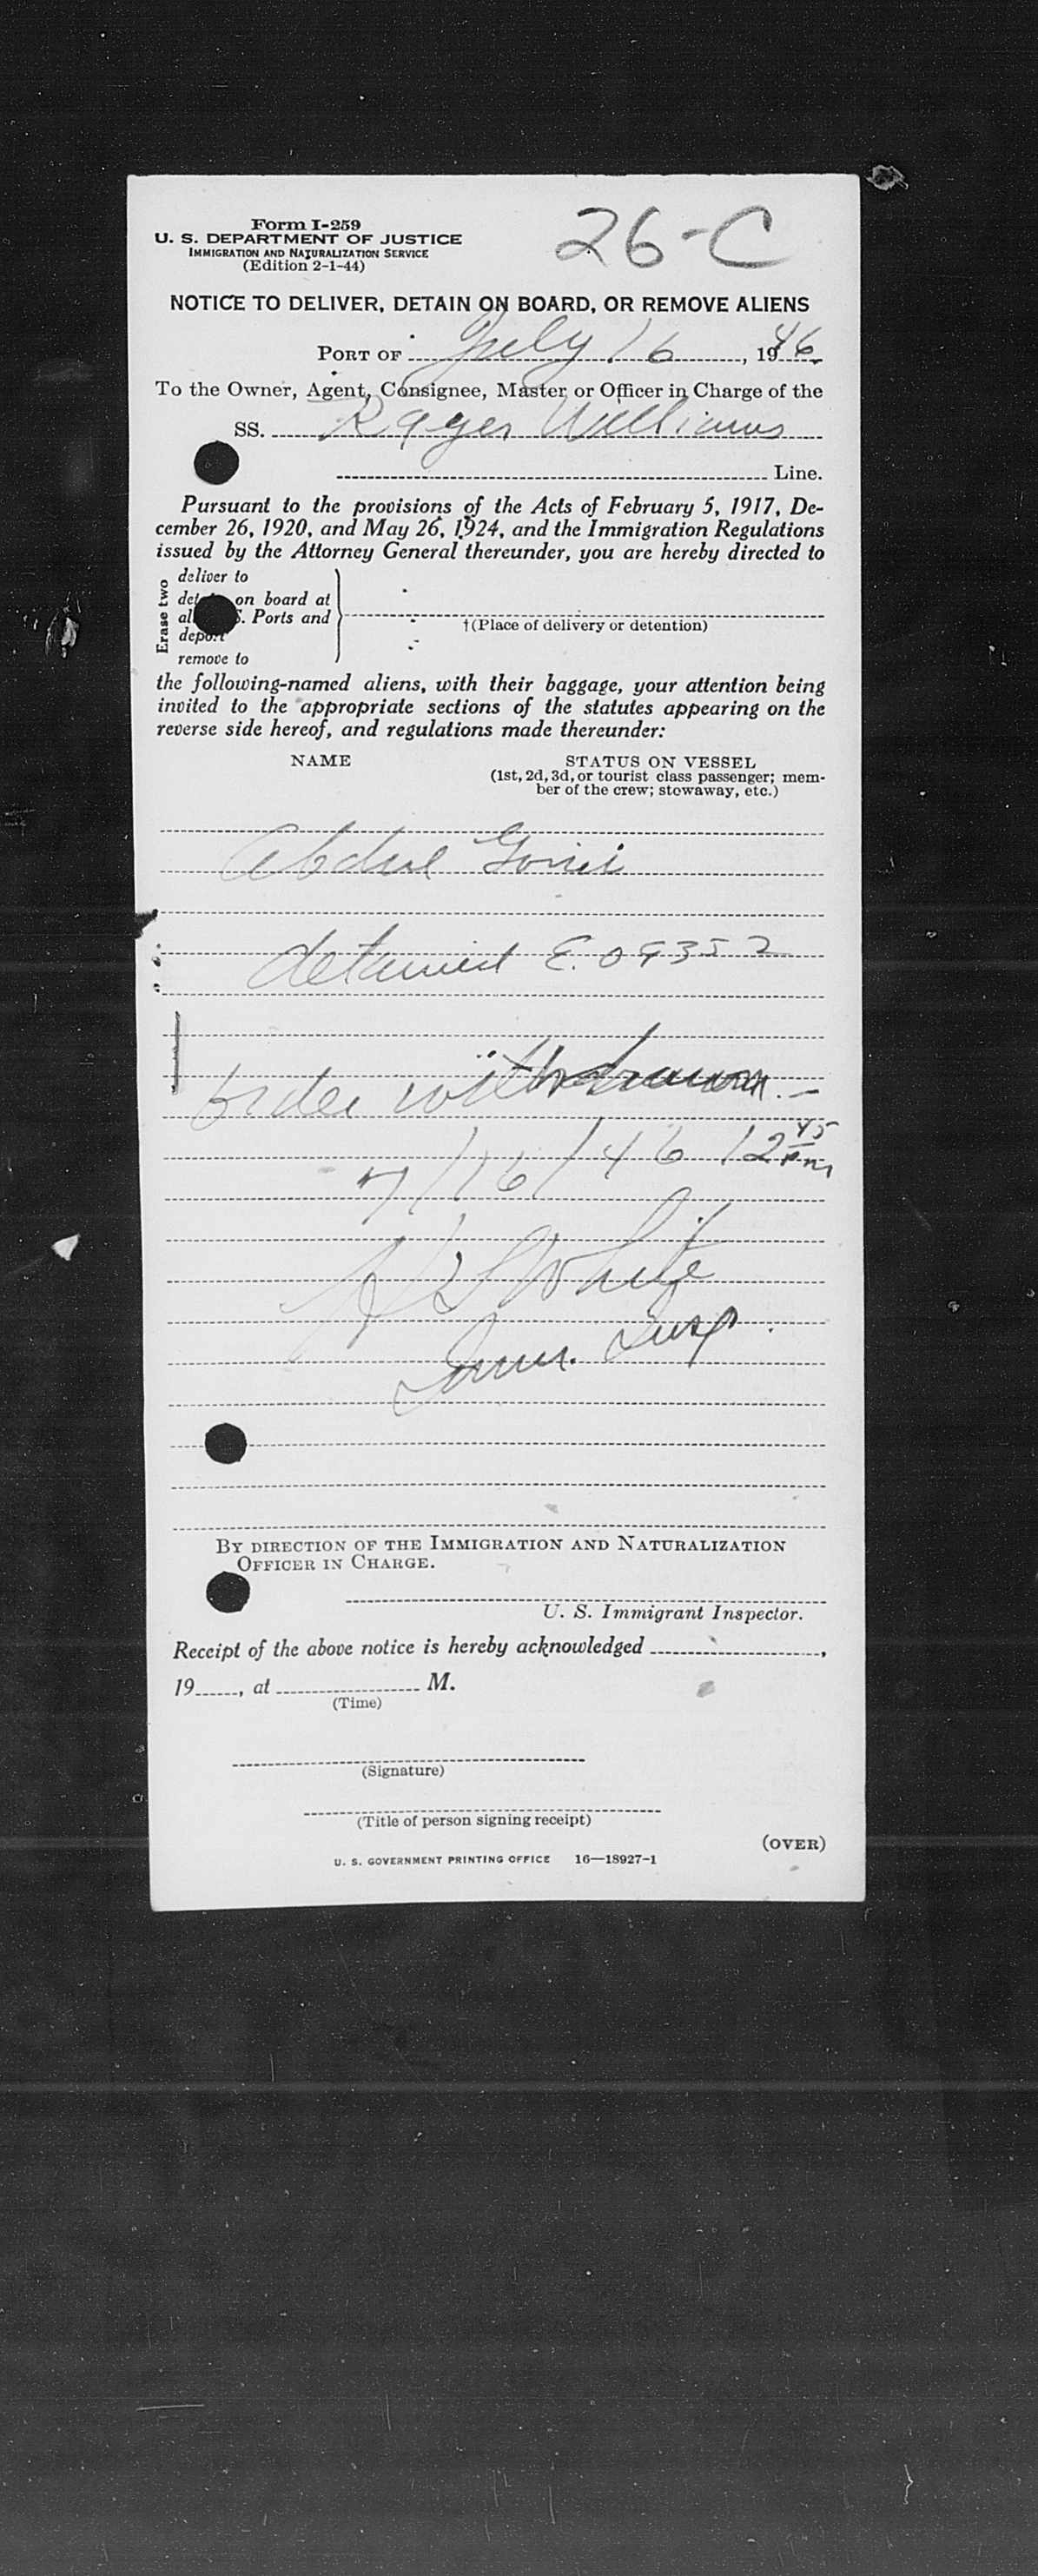 Form I-259
26-C
U. S. DEPARTMENT OF JUSTICE
IMMIGRATION AND NATURALIZATION SERVICE
(Edition 2-1-44)
NOTICE TO DELIVER, DETAIN ON BOARD, OR REMOVE ALIENS
PORT OF July 16, 1946.
To the Owner, Agent, Consignee, Master or Officer in Charge of the
SS. Roger Williams
Line.
Pursuant to the provisions of the Acts of February 5, 1917, De-
cember 26, 1920, and May 26, 1924, and the Immigration Regulations
issued by the Attorney General thereunder, you are hereby directed to
Erase two
deliver to
on board at
Ports and
†(Place of delivery or detention)
remove to
the following-named aliens, with their baggage, your attention being
invited to the appropriate sections of the statutes appearing on the
reverse side hereof, and regulations made thereunder:
NAME STATUS ON VESSEL
(1st, 2d, 3d, or tourist class passenger; mem-
ber of the crew; stowaway, etc.)
Abdul Goni
detained E. 09352
order withdrawn.-
7/16/46 12 45 pm
White
Imm. Insp.
BY DIRECTION OF THE IMMIGRATION AND NATURALIZATION
OFFICER IN CHARGE.
U. S. Immigrant Inspector.
Receipt of the above notice is hereby acknowledged ,
19 , at M.
(Time)
(Signature)
(Title of person signing receipt)
(OVER)
U. S. GOVERNMENT PRINTING OFFICE 16—18927-1